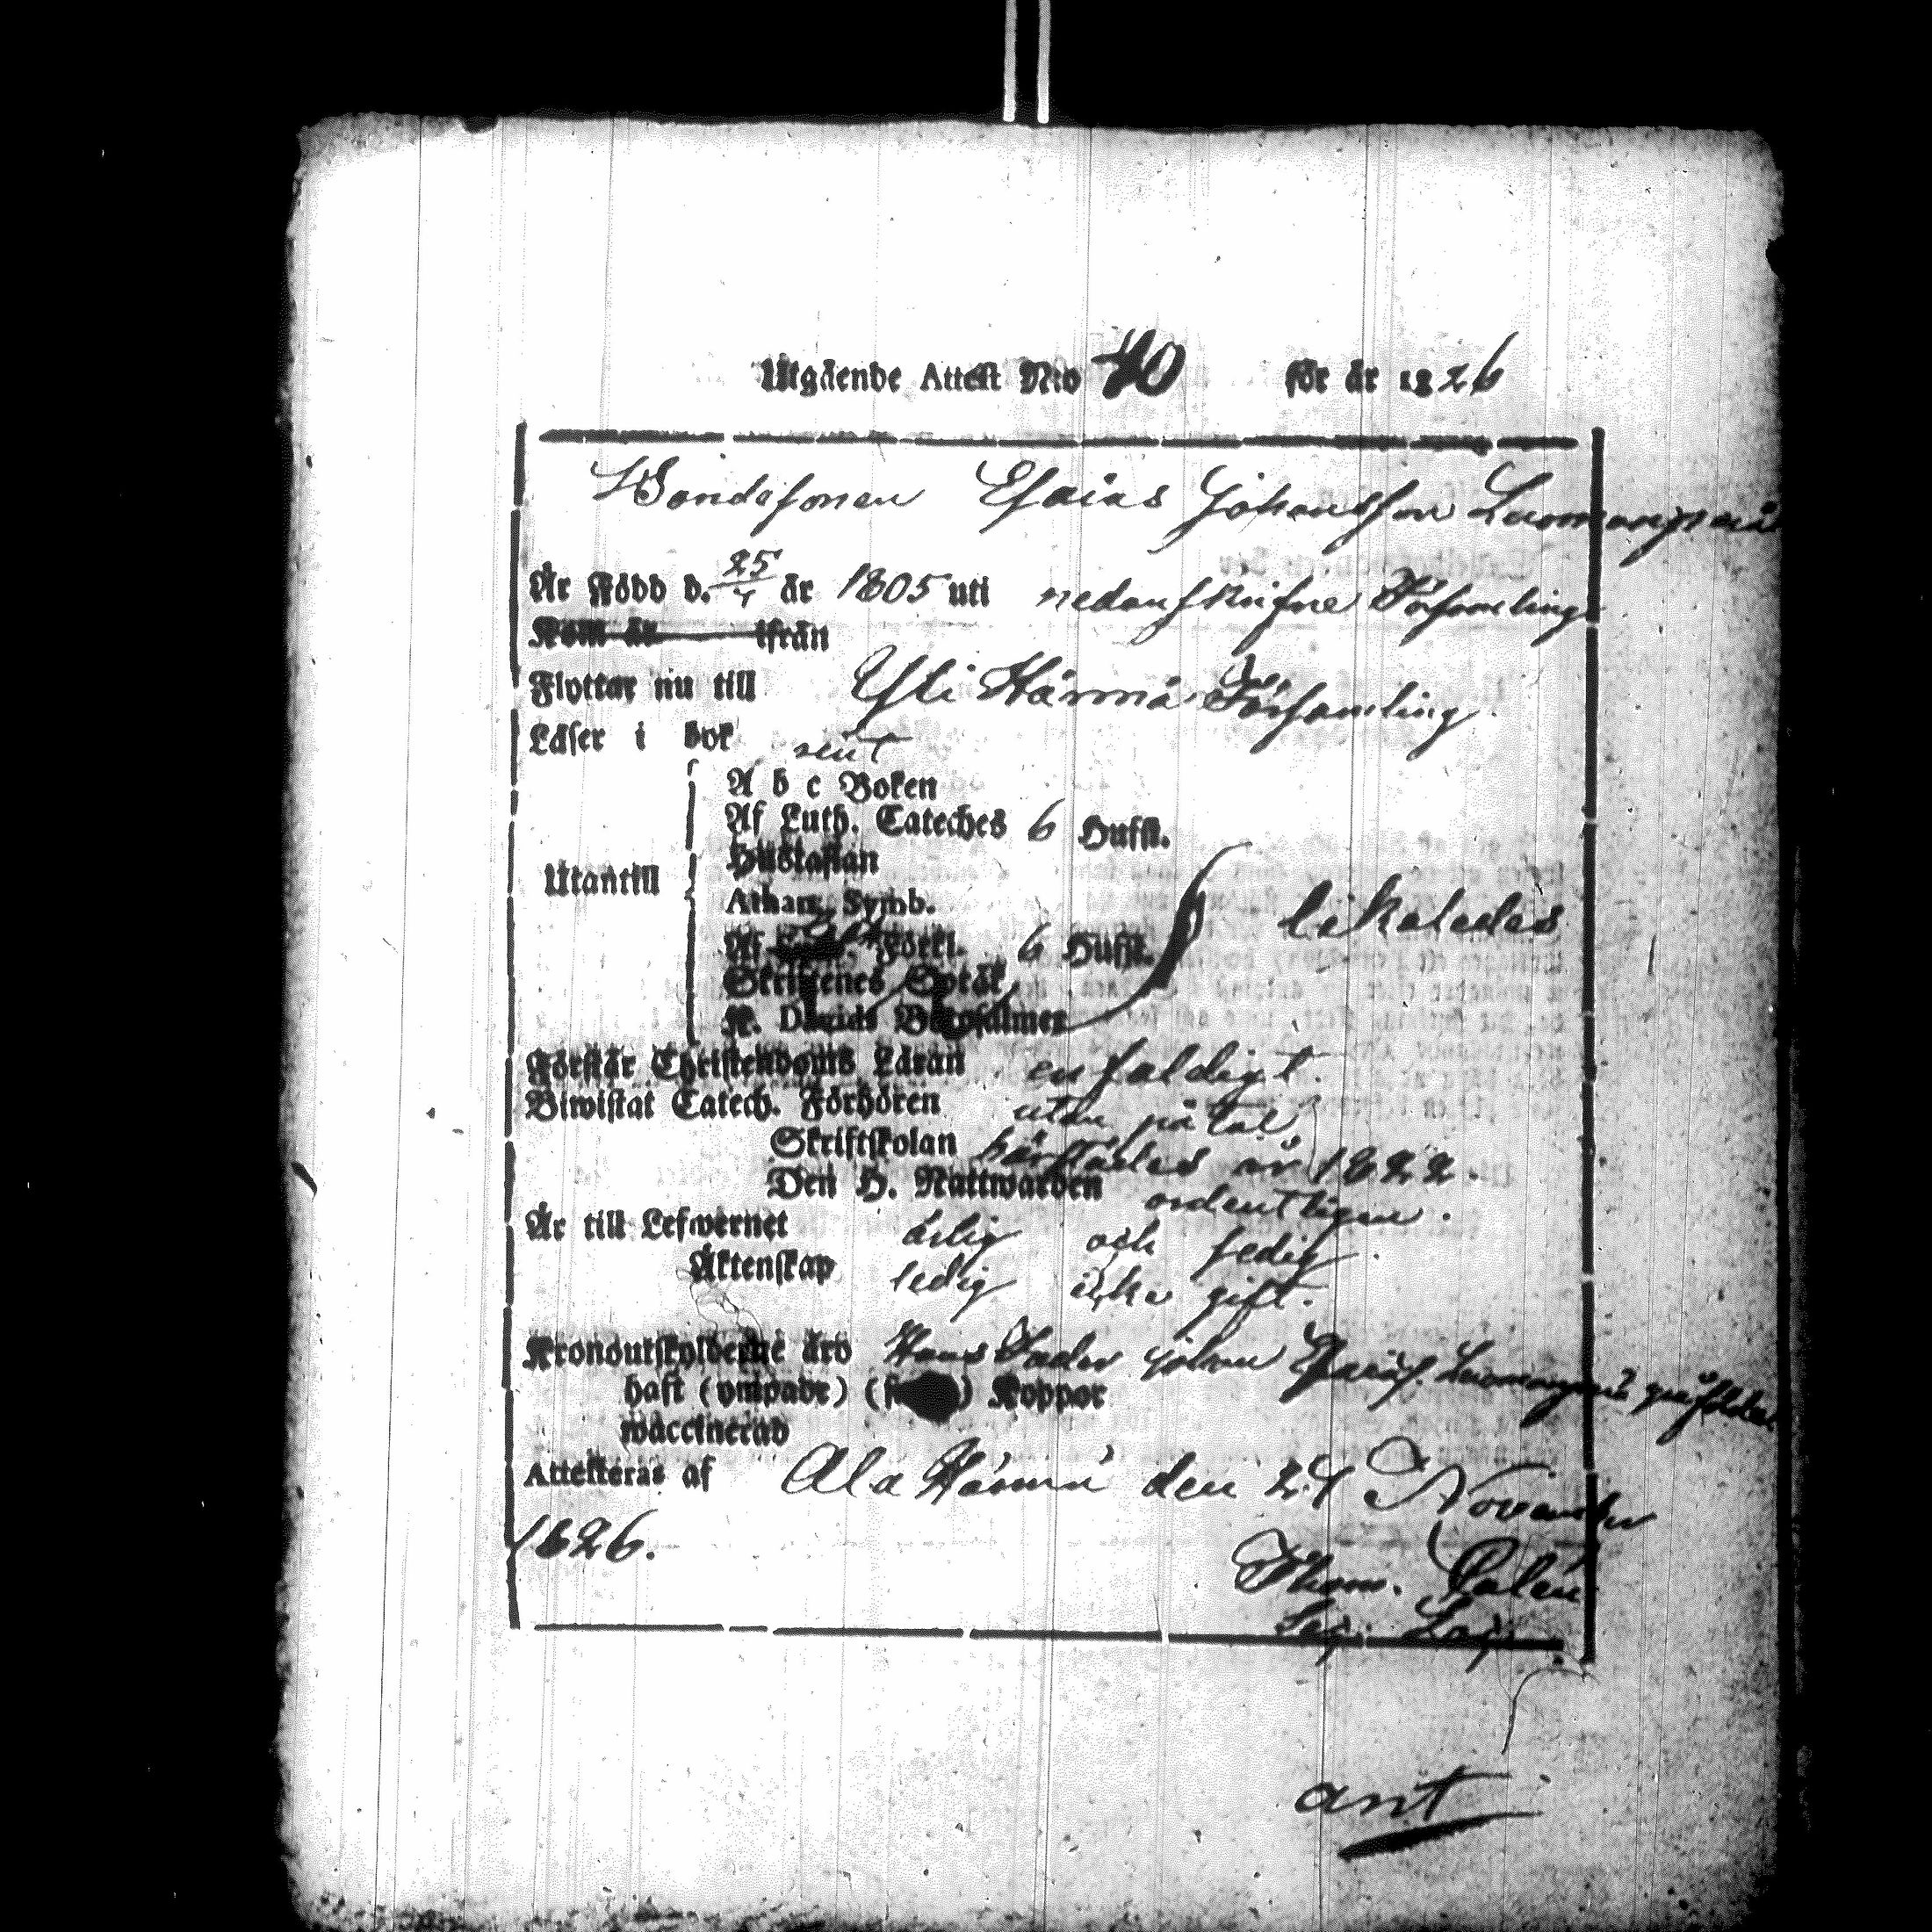 Utgående Attest N:o 40 för år 1826
Bondesonen Esaias Johansson Luomanpää
Är Född d. 25/4 år 1805 uti nedanskrifne Församling
Kom år ifrån
Flyttar nu till Yli Härmä Församling.
Läser i bok rent
A b c Boken
Af Luth. Cateches 6 Hufst.
Hustaflan
Utantill
Athan. Symb.
Af Förkl. 6 Hufst. likaledes
Skriftenes Språk
K. Davids Botpsalmer
Förstår Christendoms Läran enfaldigt.
Biwistat Catech. Förhören utan påtal
Skriftskolan härstädes år 1822.
Den H. Nattwarden ordentligen.
Är till Lefwernet ärlig och fredig.
Äktenskap ledig icke gift.
Kronoutskylderne äro Hans Fader Johan
haft (ympade) Koppor
waccinerad
Attesteras af Ala Härmä den 24 November
1826.
Thom.
ant